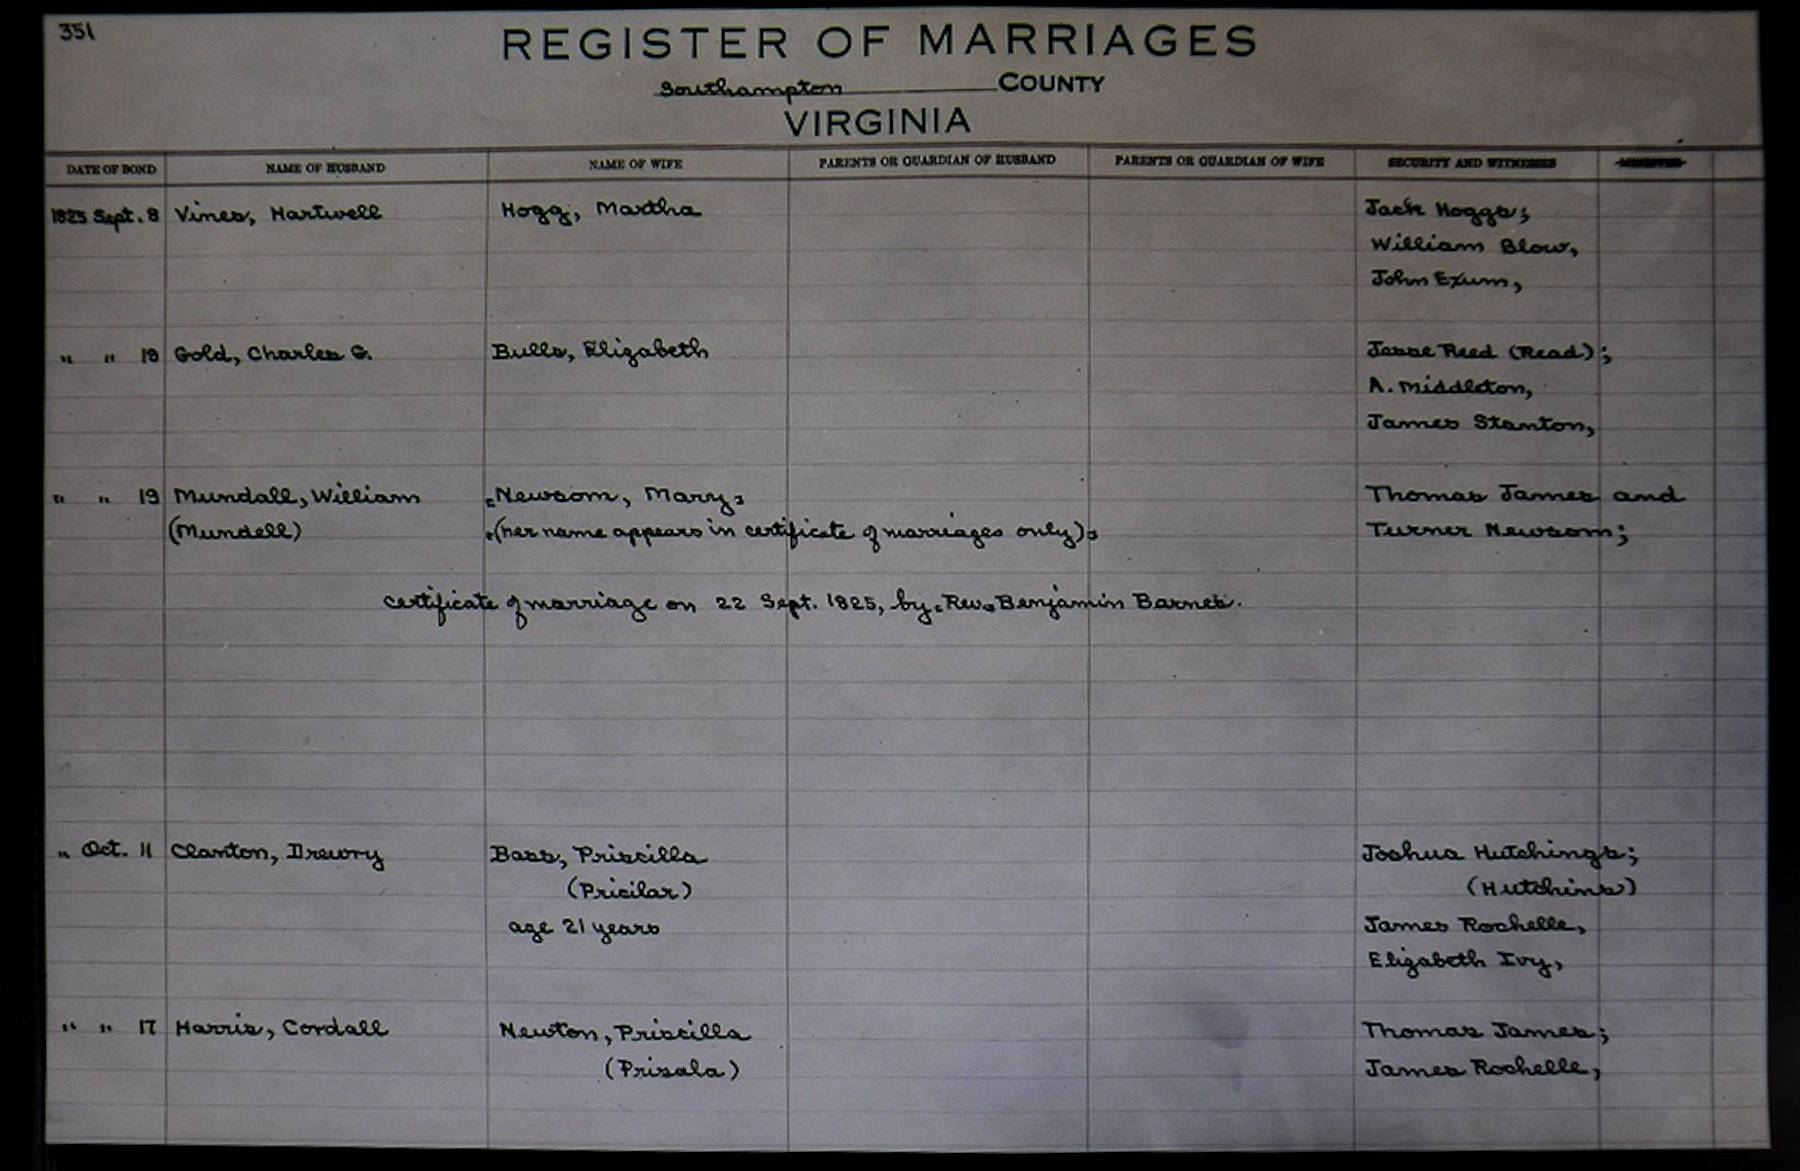 351
REGISTER OF MARRIAGES
Southampton COUNTY
VIRGINIA
DATE OF BOND NAME OF HUSBAND NAME OF WIFE PARENTS OR GUARDIAN OF HUSBAND PARENTS OR GUARDIAN OF WIFE SECURITY AND WITNESSES MINISTER
1825 Sept. 8 Vines, Hartwell Hogg, Martha Jack Hoggs;
William Blow,
John Exum,
" " 19 Gold, Charles G. Bulls, Elizabeth Jesse Reed (Read);
A. Middleton,
James Stanton,
" " 19 Mundall, William [Newsom, Mary] Thomas James and
(Mundell) [(her name appears in certificate of marriages only)] Turner Newsom;
certificate of marriage on 22 Sept. 1825, by [Rev.] Benjamin Barnes.
" Oct. 11 Clanton, Drewry Bass, Priscilla Joshua Hutchings;
(Pricilar) (Hutchins)
age 21 years James Rochelle,
Elizabeth Ivy,
" " 17 Harris, Cordall Newton, Priscilla Thomas James;
(Prisala) James Rochelle,